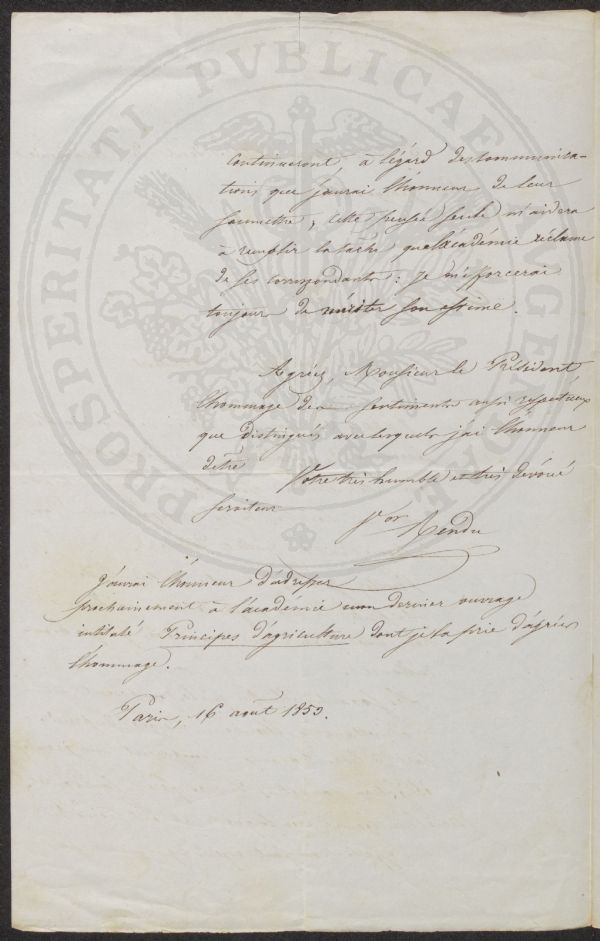 PROSPERITATI PVBLICAE AVGENDAE
continueront, à l'égard des communica-
tions que j'aurai l'honneur de leur
soumettre; cette pensée seule m'aidera
à remplir la tâche que l'académie réclame
de ses correspondants: je m'efforcerai
toujours de mériter son estime.
Agréez, Monsieur le Président
l'hommage des sentiments aussi respectueux
que distingués avec lesquels j'ai l'honneur
d'être
Votre très humble et très dévoué
serviteur
Vor Rendu
J'aurai l'honneur d'adresser
prochainement à l'académie mon dernier ouvrage
intitulé Principes d'agriculture dont je la prie d'agréer
l'hommage.
Paris, 16 août 1853.